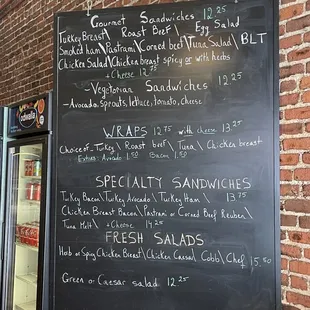 Gourmet Sandwiches 12.25
Turkey Breast / Roast Beef / Egg Salad
Smoked ham / Pastrami / Corned beef / Tuna Salad / BLT
Chicken Salad / Chicken breast spicy or with herbs
+ Cheese 12.75
- Vegetarian Sandwiches 12.25
- Avocado, sprouts, lettuce, tomato, cheese
WRAPS 12.75 with cheese 13.25
Choice of - Turkey / Roast beef / Tuna / Chicken breast
Extras: Avocado 1.50 Bacon 1.50
SPECIALTY SANDWICHES
Turkey Bacon / Turkey Avocado / Turkey Ham / 13.75
Chicken Breast Bacon / Pastrami or Corned Beef Reuben /
Tuna Melt / + Cheese 14.25
FRESH SALADS
Herb or Spicy Chicken Breast / Chicken Caesar / Cobb / Chef 15.50
Green or Caesar salad 12.25